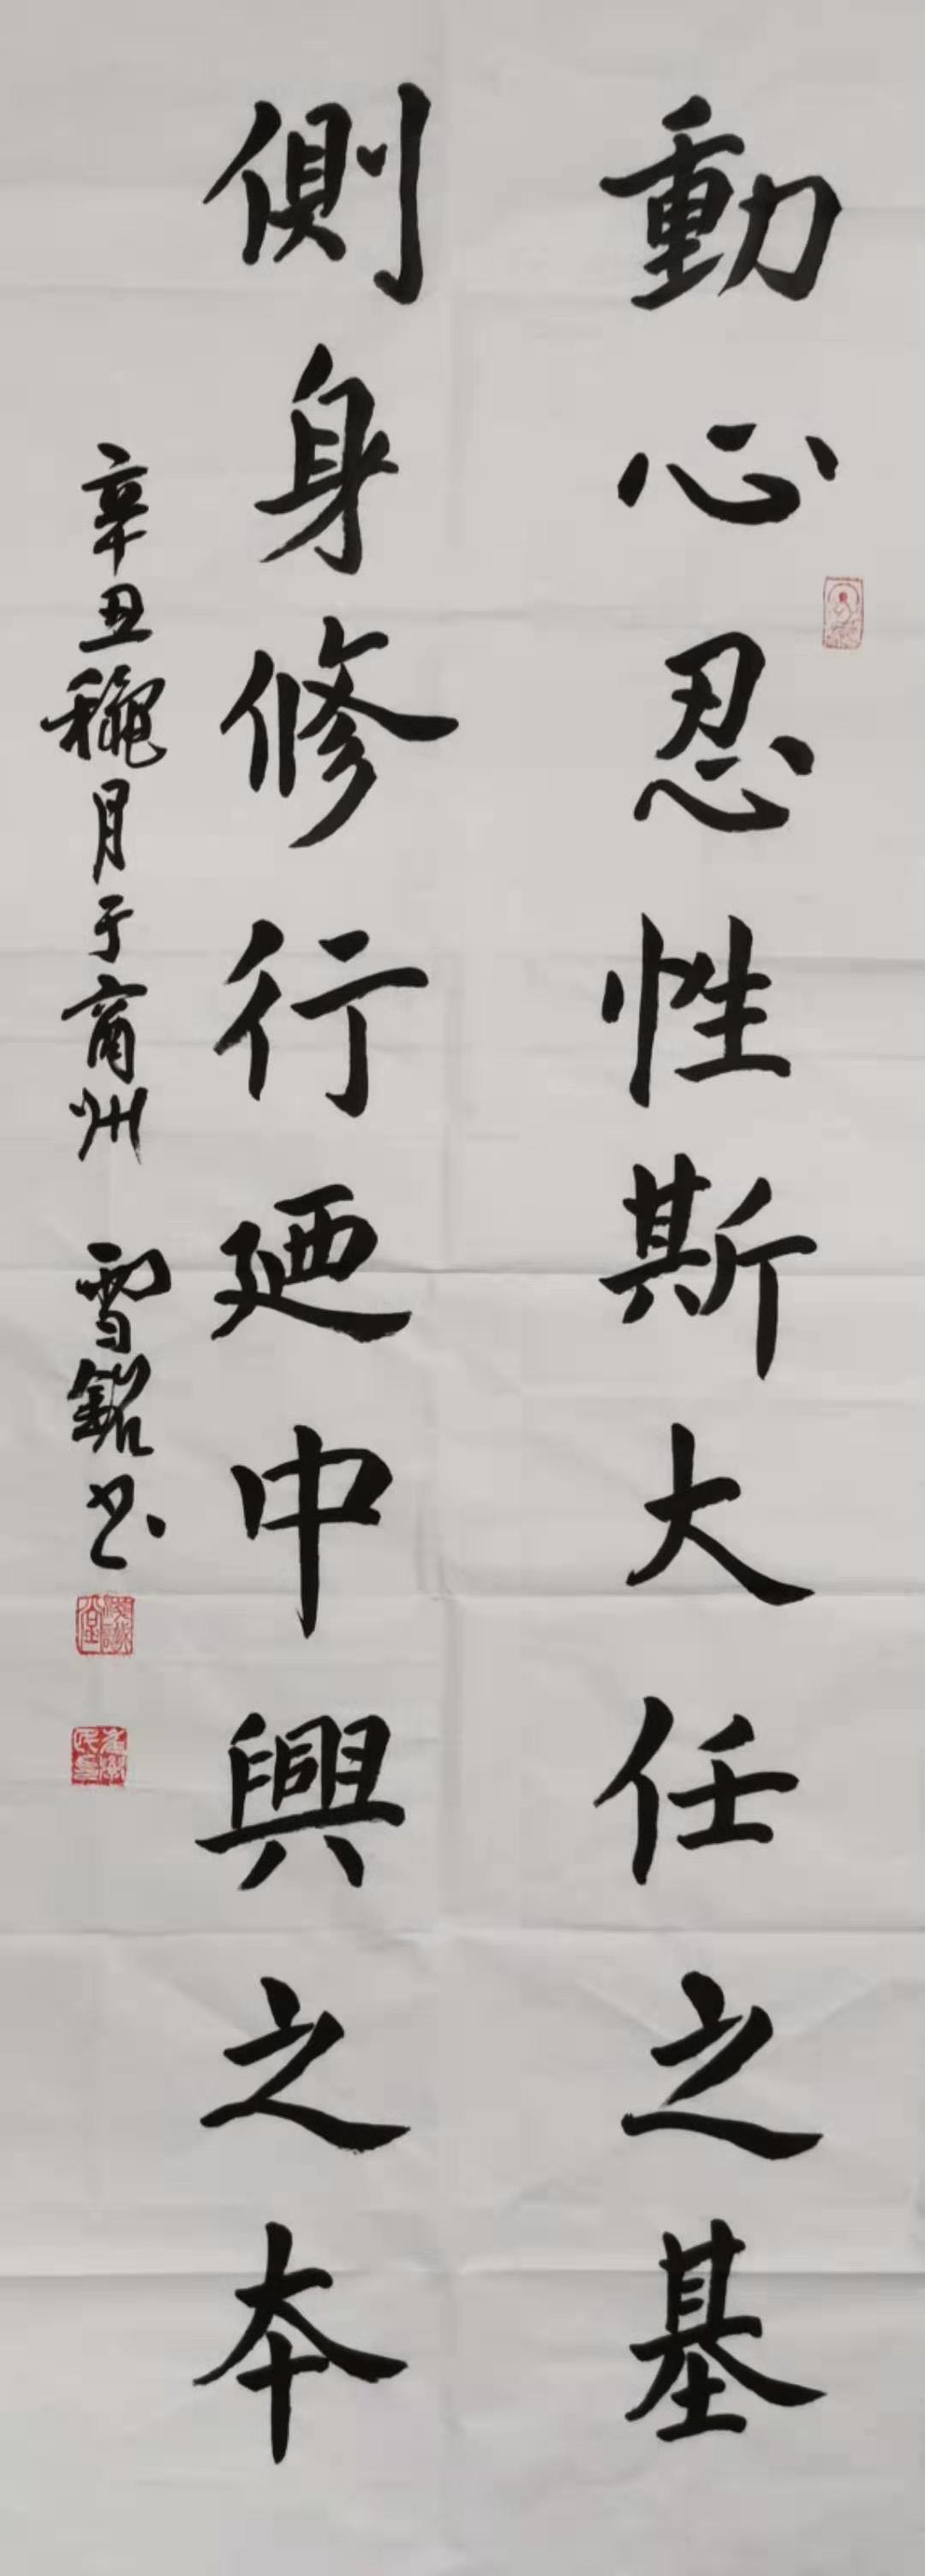 動心忍性斯大任之基
側身修行廼中興之本
辛丑龝月于商州 雪銘书